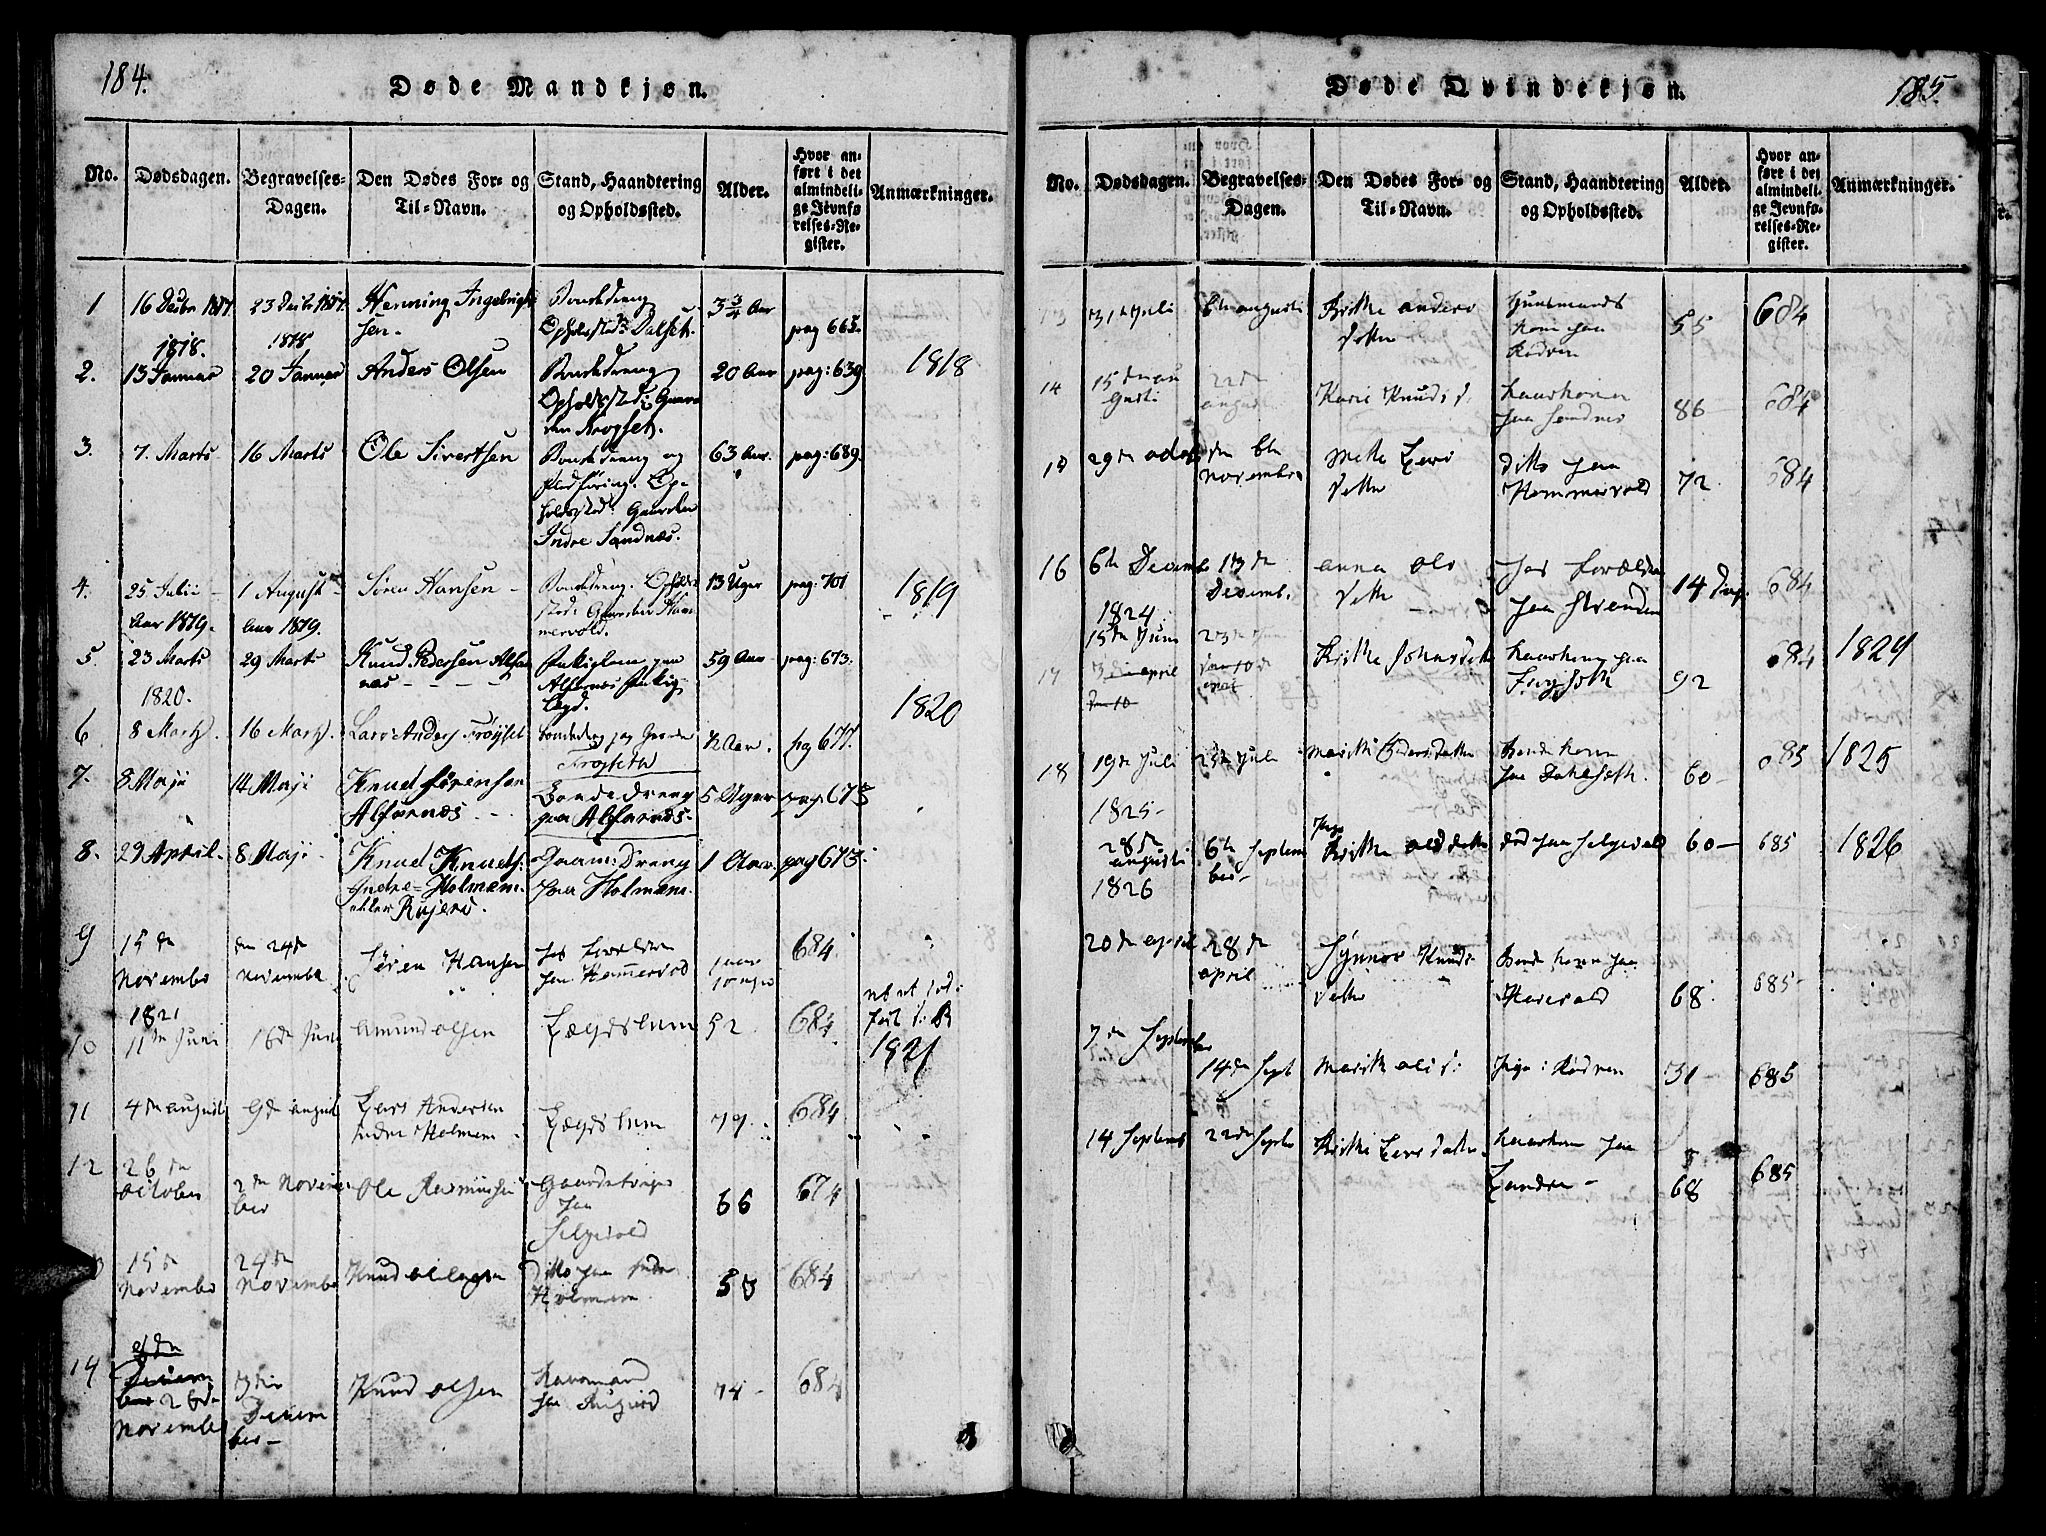 184.
Døde Mandkjøn.
No.
Dødsdagen.
Begravelses-
Dagen.
Den Dødes For- og
Til-Navn.
Stand, Haandtering
og Opholdssted.
Alder.
Hvor an-
ført i det
almindeli-
ge Jevnfø-
relses-Re-
gister.
Anmærkninger.
1
16 Decbr 1817.
23 Decbr 1817.
Henning Ingebrigt-
sen.
Bondedreng
Opholdsted: Dalset.
3 3/4 Aar
pag 665.
1818.
1818
2.
13 Januar
20 Januar
Anders Olsen
Bondedreng
Opholdsted: Gaar-
den Frogset.
20 Aar
pag: 639.
1818
3.
7. Marts
16 Marts
Ole Sivertsen
Bondedreng og
Op-
holdssted: Gaarden
Indre Sandnæs.
63 Aar.
pag: 689.
4.
25 Julii
Aar 1819.
1 August
Aar 1819.
Søren Hansen
Bondedreng. Ophold-
sted: Gaarden Ham-
mervold.
13 Uger
pag: 701
1819
5.
23 Marts
29 Marts
Knud Pedersen Alfar-
næs
paa
Alfarnæs
Lægd.
59 Aar
pag: 673.
1820.
1820
6.
8 Marts.
16 Marts.
Lars Anders Frøyset
Bondedreng paa Gaarden
Frogseth
pag 677.
7.
8 Maji
14 Maji
Knud Sørensen
Alfarnæs
Bonde dreng
paa Alfarnæs
5 Uger
pag 673
8.
29 April.
8 Maji
Knud Knuds:
Indre Holmem
eller Røjero.
Gaam: Dreng
paa Holmem.
1 Aar.
pag 673.
9
15 de
November
den 24de
November
Søren Hansen
hos Forældre
paa Hammervold
1 aar
10 uger
684
1821
10
11te Juni
16de Juni
Amund Olsen
Lægdslem
52
684
1821
11
4de august
9de august
Lars Andersen
Indre Holmem
Lægdslem
79
684
12
26 de
October
2den Novem-
ber
Ole Rasmussen
paa
Selgevold
66
674
15 de
November
24de
November
Knud
Ditto paa Indre
Holmem
53
684
14
26de
November
Decem-
ber
Knud Olsen
Kaarmand
paa
74
684
185.
Døde Qvindekjøn.
No.
Dødsdagen.
Begravelses-
Dagen.
Den Dødes For- og
Til-Navn.
Stand, Haandtering
og Opholdssted.
Alder.
Hvor an-
ført i det
almindeli-
ge Jevnfø-
relses-Re-
gister.
Anmærkninger.
13
31te Juli
6te augusti
Brithe anders
Datter
Huusmands
kone paa
Rødven
55
684
14
15de au
gusti
22de
august
Kari Knuds d.
kaarkone
paa Sandnes
86
684
15
29de
den 6te
November
Mette Lars
Datter
Ditto paa
Hammervold
72
684
16
6te Decemb
13de
Decemb.
anna ols
Datter
hos Forældre
paa Stranden
14 Dage
684
1824
15de Juni
17
april
Brithe Johnsdatter
kaarkone paa
92
684
1824
18
19de Juli
25de Juli
Marith Pedersdatter
Bonde kone
paa Dahlseth.
60
685
1825
1825
28de
augusti
6te Septem
ber
Pige
Brithe olsdatter
død paa Selgevold
60
685
1826
1826
20de april
28de
april
Synnøv Knuds
Datter
Bonde kone paa
Harevold
68.
685
7de September
14de Sept
Marith ols d:
Pige i Rødven
31
685
14 Septemb
22de Septb
Brithe Lars datter
kaarkone paa
68
685